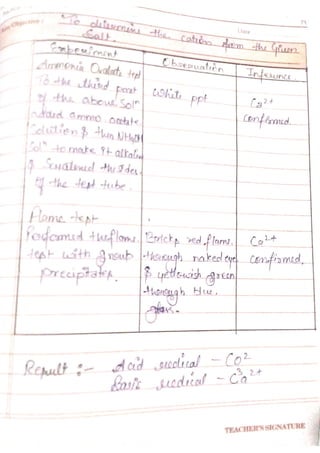 To determine the cation from the Given
Salt.
Experiment Observation Inference
Ammonia Oxalate test
To the third part White ppt Ca2+
of the above Soln confirmed.
add ammo oxalate
Solution & then NH4OH
Soln to make it alkaline
& Scratched the sides
of the test tube.
Flame test
Performed the flame Brick red flame Ca2+
test with group through naked eye confirmed.
precipitates & yellowish green
through blue
glass.
Result :- Acid radical - CO3 2-
Basic radical - Ca2+
TEACHER'S SIGNATURE